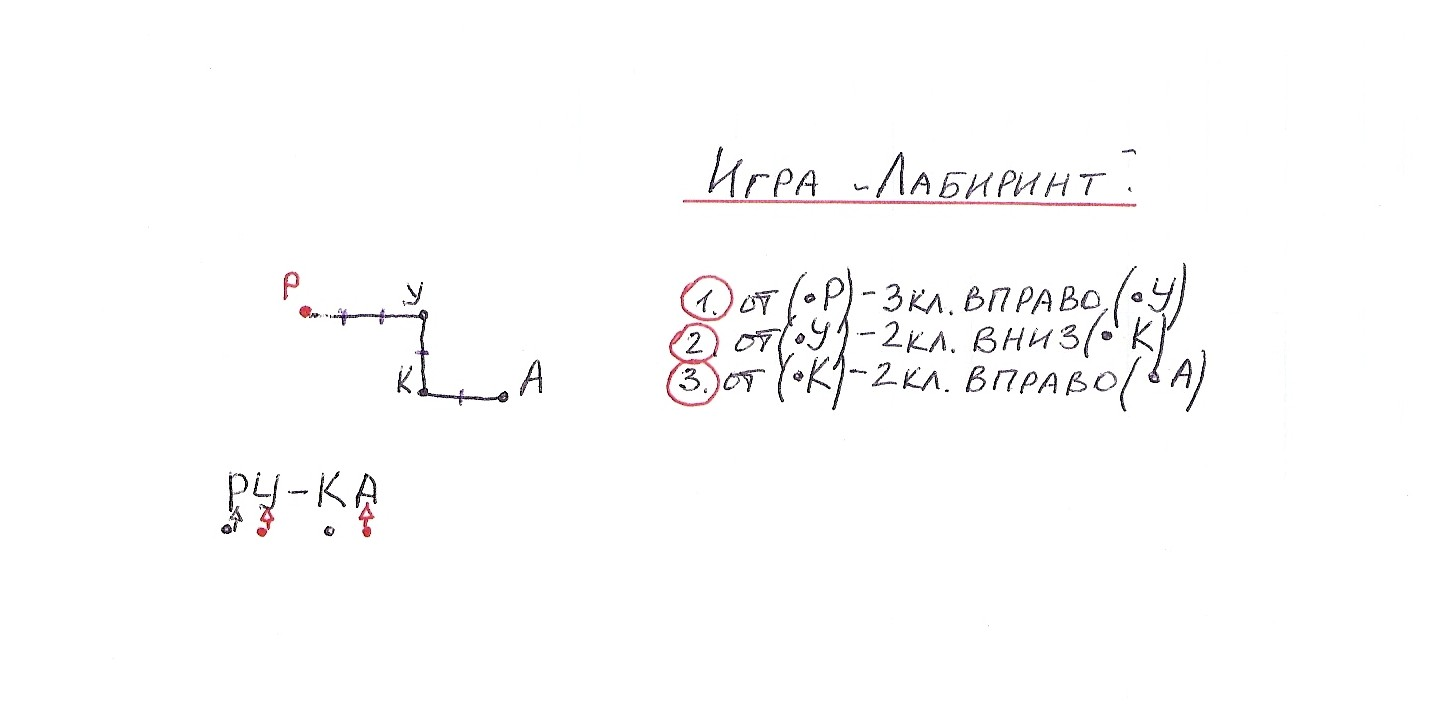 Игра „Лабиринт".
1. от (•Р) - 3 кл. вправо (•У)
2. от (•У) - 2 кл. вниз (• К)
3. от (•К) - 2 кл. вправо (•А)
Р
У
К
А
РУ-КА